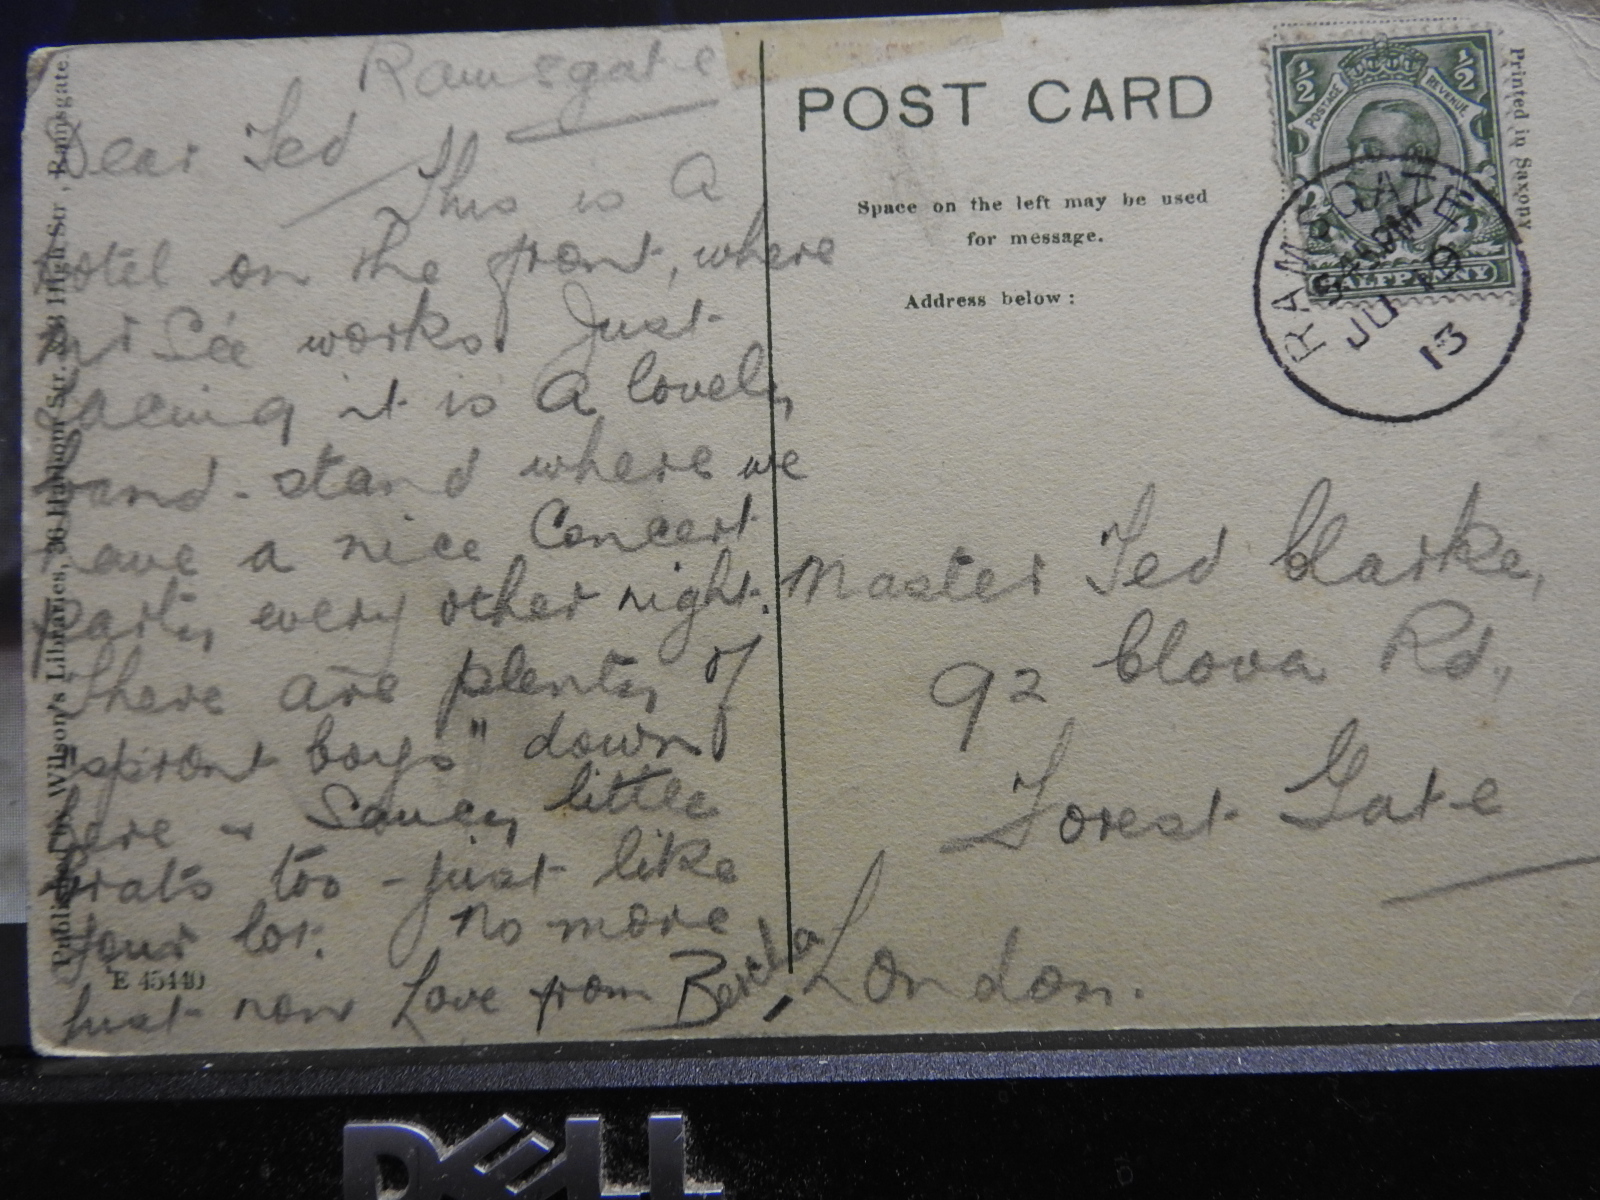 Ramsgate
Dear Ted
This is a
hotel on the front, where
Mr Lee works. Just
facing it is a lovely
band-stand where we
have a nice Concert
party every other night.
There are plenty of
"sprout boys" down
here & Saucy little
brats too - just like
your lot. No more
just now Love from Bertha
Published by Wilson's Libraries, 36 Harbour Str. High Str., Ramsgate.
E 45440
POST CARD
Space on the left may be used
for message.
Address below:
Printed in Saxony
1/2 1/2
POSTAGE REVENUE
HALFPENNY
RAMSGATE
JU 19
13
Master Ted Clarke,
92 Clova Rd.,
Forest Gate
London.
DELL